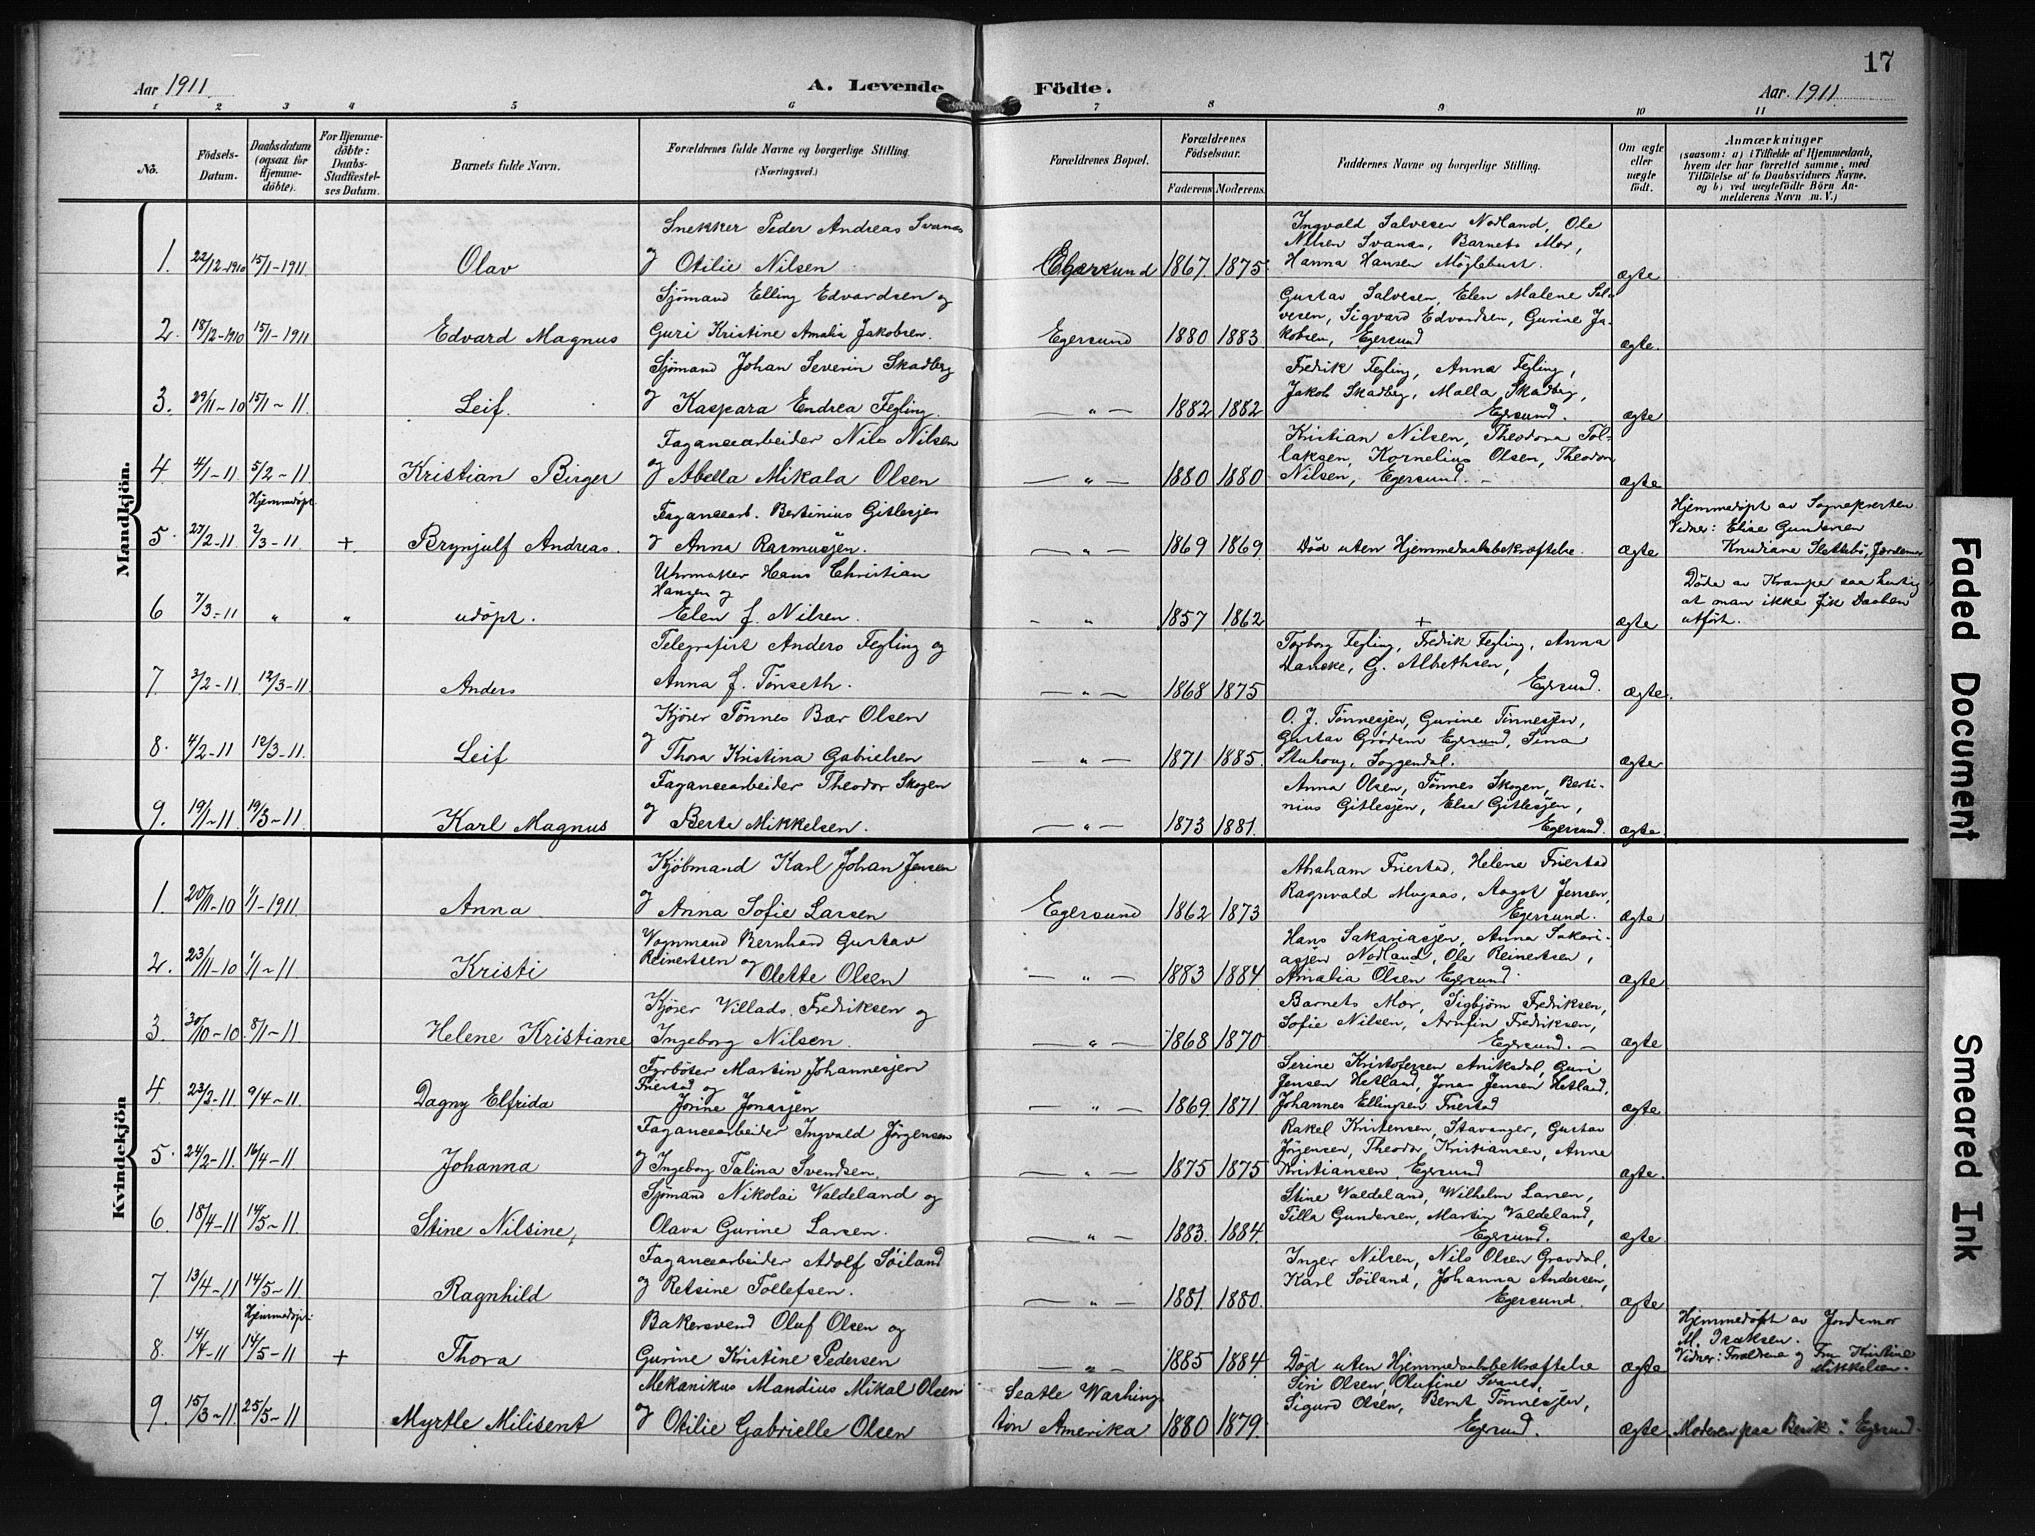 17
Aar 1911
A. Levende Födte.
Aar 1911
1 2 3 4 5 6 7 8 9 10 11
No.
Födsels-Datum.
Daabsdatum (ogsaa för Hjemme-döbte).
For Hjemme-döbte: Daabs-Stadfæstel-ses Datum.
Barnets fulde Navn.
Forældrenes fulde Navne og borgerlige Stilling. (Næringsvei.)
Forældrenes Bopæl.
Forældrenes Födselsaar.
Faderens Moderens
Faddernes Navne og borgerlige Stilling.
Om ægte eller uægte födt.
Anmærkninger
(saasom: a) i Tilfælde af Hjemmedaab,
hvem der har forrettet samme, med
Tilföielse af to Daabsvidners Navne.
og b) ved uægtefödte Börn An-
melderens Navn m. V.)
Mandkjön.
Snekker Peder Andreas Svanæs
Ingvald Salvesen Nodland, Ole
Nilsen Svanæs, Barnets Mor,
1. 22/12-1910 15/1-1911 Olav og Otilie Nilsen Egersund 1867 1875 Hanna Hansen Møglebust. ægte
Sjømand Elling Edvardsen og
Gustav Salvesen, Elen Malene Sal-
vesen, Sigvard Edvardsen, Gurine Ja-
2. 18/12-1910 15/1-1911 Edvard Magnus Guri Kristine Amalia Jakobsen. Egersund 1880 1883 kobsen, Egersund ægte.
Sjømand Johan Severin Skadberg
Fredrik Fegling, Anna Fegling,
Jakob Skadberg, Malla Skadberg,
3. 29/11-10 15/1-11. Leif. og Kaspara Endrea Fegling. — „ — 1882 1882 Egersund. ægte
Fayancearbeider Nils Nilsen
Kristian Nilsen, Theodora Tol-
laksen, Kornelius Olsen, Theodor
4 4/1-11 5/2-11 Kristian Birger og Abella Mikala Olsen — „ — 1880 1880 Nilsen, Egersund. — ægte
Hjemmedøpt
Fayancearb. Bertinius Gitlesjen
Hjemmedøpt av Sognepresten.
Vidner: Elise Gundersen
5. 27/2-11 2/3-11. + Brynjulf Andreas. og Anna Rasmussen. — „ — 1869 1869 Død uten Hjemmedaabsbekræftelse. ægte Knudiane Slettebø, Jordemor
Uhrmaker Hans Christian
Hansen og
Døde av Krampe saa hurtig
at man ikke fik Daaben
6 7/3-11 „ „ udøpt. Elen f. Nilsen. — „ 1857 1862 + ægte utført.
Telegrafist Anders Fegling og
Torborg Fegling, Fredrik Fegling, Anna
Daneke, G. Albethsen,
7. 3/2-11. 12/3-11. Anders Anna f. Tønseth. — „ — 1868 1875 Egersund. ægte.
Kjører Tønnes Bær Olsen
O. J. Tønnesjen, Gurine Tønnesjen,
Gustav Grødem Egersund, Sina
8. 4/2-11 12/3-11. Leif og Thora Kristina Gabrielsen — „ — 1871 1885. Stuhoug, Soggendal. ægte
Fayancearbeider Theodor Skogen
Anna Olsen, Tønnes Skogen, Berti-
nius Gitlesjen, Else Gitlesjen,
9. 19/1-11 19/3-11. Karl Magnus og Berte Mikkelsen. — „ — 1873 1881. Egersund. ægte.
Kvindekjön
Kjøbmand Karl Johan Jensen
Abraham Friestad, Helene Friestad
Ragnvald Mugaas, Aagot Jensen,
1. 20/11-10 1/1-1911. Anna og Anna Sofie Larsen Egersund 1862 1873 Egersund. ægte
Vognmand Bernhard Gustav
Reinertsen og
Hans Sakariasjen, Anna Sakari-
asjen Nodland, Ole Reinertsen,
2. 23/11-10 1/1-11 Kristi Olette Olsen — „ — 1883 1884. Amalia Olsen Egersund. ægte
Kjører Villads Fredriksen og
Barnets Mor, Sigbjørn Fredriksen,
Sofie Nilsen, Arnfin Fredriksen,
3. 30/10-10. 8/1-11 Helene Kristiane Ingeborg Nilsen. — „ — 1868 1870 Egersund. — ægte
Fyrbøter Martin Johannesjen
Friestad og
Serine Kristofersen Aniksdal, Guri
Jensen Hetland, Jonas Jensen Hetland,
4 23/3-11 9/4-11. Dagny Elfrida Jorine Jonasjen — „ — 1869 1871 Johannes Ellingsen Friestad ægte
Fayancearbeider Ingvald Jørgensen
Rakel Kristensen, Stavanger, Gustav
Jørgensen, Theodor Kristiansen, Anna
5. 24/2-11. 16/4-11 Johanna og Ingeborg Talina Svendsen. — „ — 1875 1875 Kristiansen Egersund ægte.
Sjømand Nikolai Valdeland og
Stine Valdeland, Wilhelm Larsen,
Tilla Gundersen, Martin Valdeland,
6. 18/4-11 14/5-11. Stine Nilsine, Olava Gurine Larsen. — „ — 1883. 1884. Egersund. ægte
Fayancearbeider Adolf Søiland
Inger Nilsen, Nils Olsen Gravdal,
Karl Søiland, Johanna Andersen,
7 13/4-11 14/5-11. Ragnhild og Retsine Tollefsen. — „ — 1881. 1880. Egersund. ægte
Hjemmedøpt:
Bakersvend Oluf Olsen og
Hjemmedøpt av Jordemor
M. Isaksen.
8. 14/4-11 14/5-11 + Thora Gurine Kristine Pedersen — „ — 1885 1884. Død uten Hjemmedaabsbekræftelse ægte Vidner: Forældrene og Fru Kristine Mikkelsen.
Mekanikus Mandius Mikal Olsen
Seatle Washing-
Siri Olsen, Olufine Svanes,
Sigurd Olsen, Bernt Tønnesjen,
9. 15/3-11 25/5-11 Myrtle Milisent og Otilie Gabrielle Olsen ton Amerika 1880 1879. Egersund. ægte. Moderen paa Besøk i Egersund.
Faded Document
Smeared Ink